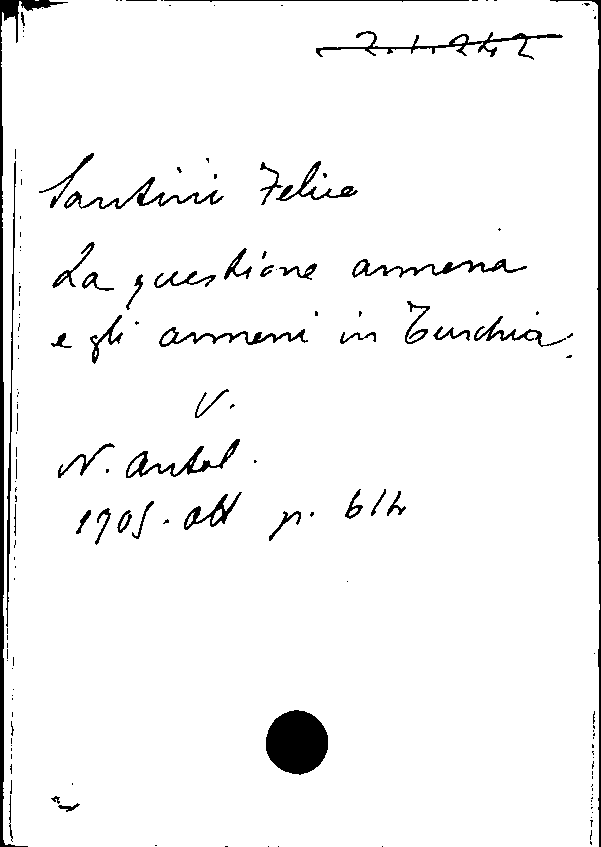 2.1.242
Santini Felice
La questione armena
e gli armeni in Turchia.
V.
N. Antol.
1905. ott p. 614